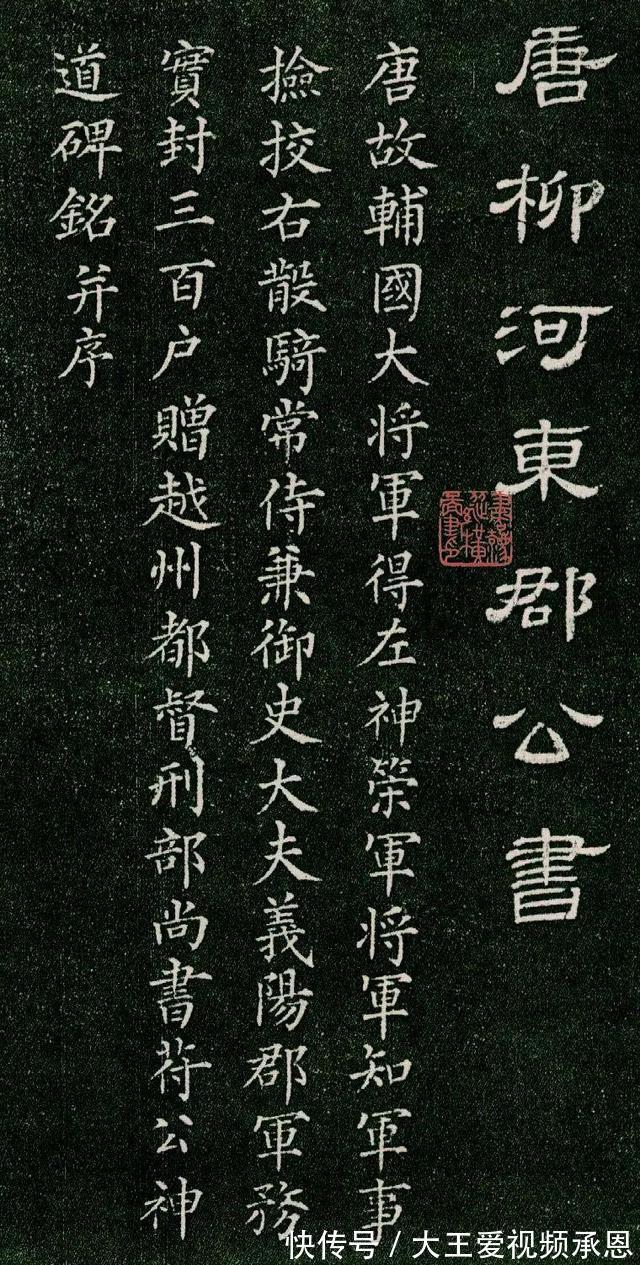 唐柳河東郡公書
唐故輔國大将軍得左神策軍将軍知軍事
撿挍右散騎常侍兼御史大夫義陽郡軍務
實封三百户贈越州都督刑部尚書苻公神
道碑銘并序
快传号 / 大王爱视频承恩